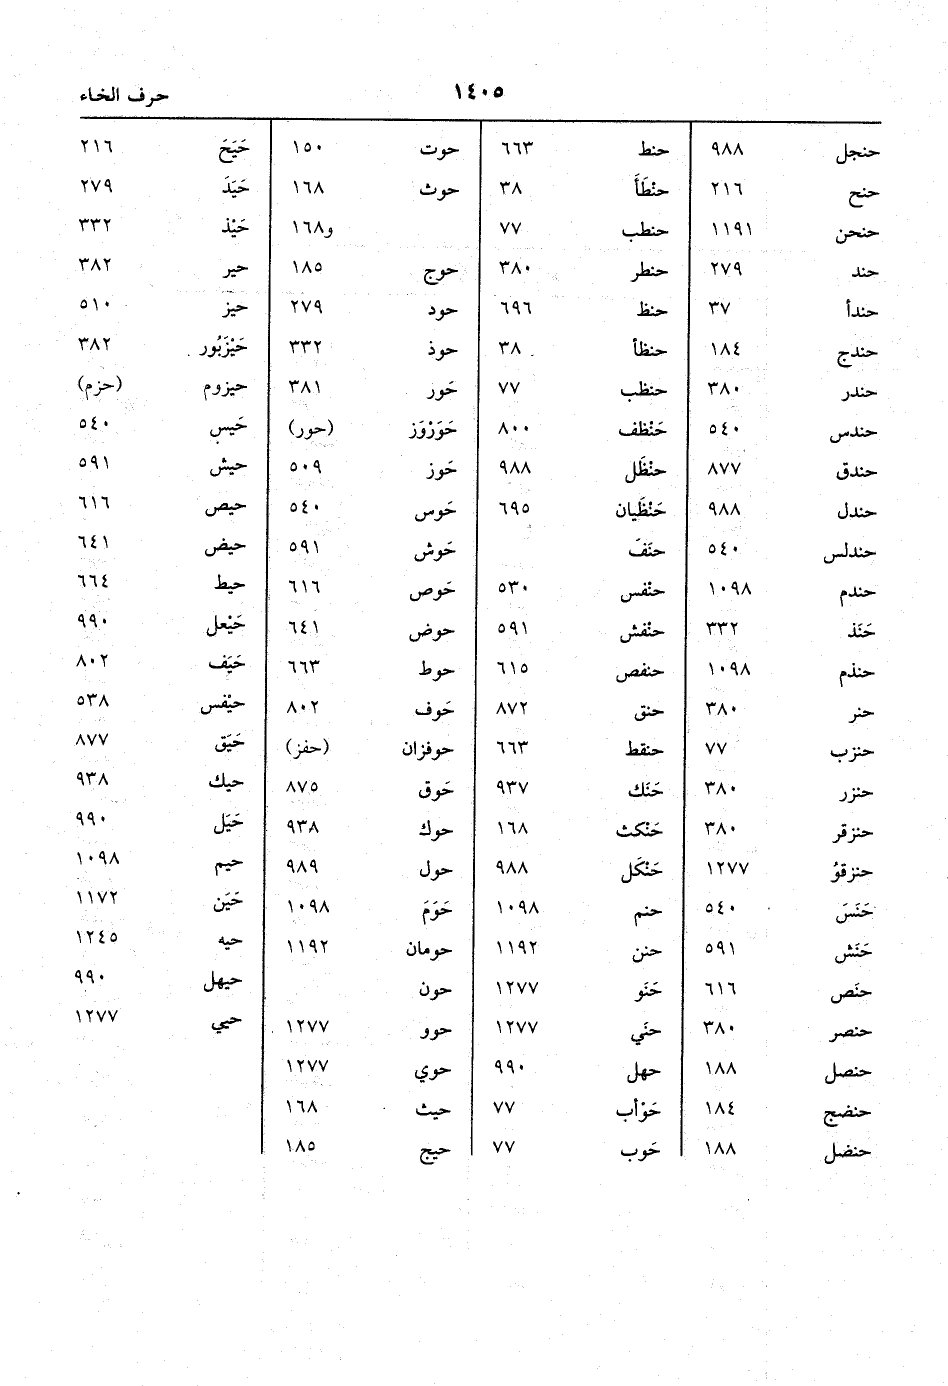 ١٤٠٥
حرف الخاء
حنجل ٩٨٨
حنح ٢١٦
حنحن ١١٩١
حند ٢٧٩
حندأ ٣٧
حندج ١٨٤
حندر ٣٨٠
حندس ٥٤٠
حندق ٨٧٧
حندل ٩٨٨
حندلس ٥٤٠
حندم ١٠٩٨
حَنَذ ٣٣٢
حنذم ١٠٩٨
حنر ٣٨٠
حنزب ٧٧
حنزر ٣٨٠
حنزقر ٣٨٠
حنزقوُ ١٢٧٧
حَنَسَ ٥٤٠
حَنَش ٥٩١
حنَص ٦١٦
حنصر ٣٨٠
حنصل ١٨٨
حنضج ١٨٤
حنضل ١٨٨
حنط ٦٦٣
حنْطَأَ ٣٨
حنطب ٧٧
حنطر ٣٨٠
حنظ ٦٩٦
حنظأ ٣٨
حنظب ٧٧
حَنْظف ٨٠٠
حنْظَل ٩٨٨
حَنْظَيان ٦٩٥
حنَفَ
حنْفس ٥٣٠
حنْفش ٥٩١
حنفص ٦١٥
حنق ٨٧٢
حنقط ٦٦٣
حَنَك ٩٣٧
حَنْكث ١٦٨
حَنْكَل ٩٨٨
حنم ١٠٩٨
حنن ١١٩٢
حَنَو ١٢٧٧
حنَي ١٢٧٧
حهل ٩٩٠
حَوْأب ٧٧
حَوب ٧٧
حوت ١٥٠
حوث ١٦٨
و١٦٨
حوج ١٨٥
حود ٢٧٩
حوذ ٣٣٢
حَور ٣٨١
حَوَرْوَز (حور)
حَوز ٥٠٩
حَوس ٥٤٠
حَوش ٥٩١
حَوص ٦١٦
حوض ٦٤١
حوط ٦٦٣
حَوف ٨٠٢
حوفزان (حفز)
حَوق ٨٧٥
حوك ٩٣٨
حول ٩٨٩
حَوَمَ ١٠٩٨
حومان ١١٩٢
حون
حوو ١٢٧٧
حوي ١٢٧٧
حيث ١٦٨
حيج ١٨٥
حَيَحَ ٢١٦
حَيَدَ ٢٧٩
حَيْذ ٣٣٢
حير ٣٨٢
حيز ٥١٠
حَيْزَبُور ٣٨٢
حيزوم (حزم)
حَيس ٥٤٠
حيش ٥٩١
حيص ٦١٦
حيض ٦٤١
حيط ٦٦٤
حَيْعل ٩٩٠
حَيَف ٨٠٢
حيْفس ٥٣٨
حَيَق ٨٧٧
حيك ٩٣٨
حَيَل ٩٩٠
حيم ١٠٩٨
حَيَن ١١٧٢
حيه ١٢٤٥
حيهل ٩٩٠
حيي ١٢٧٧